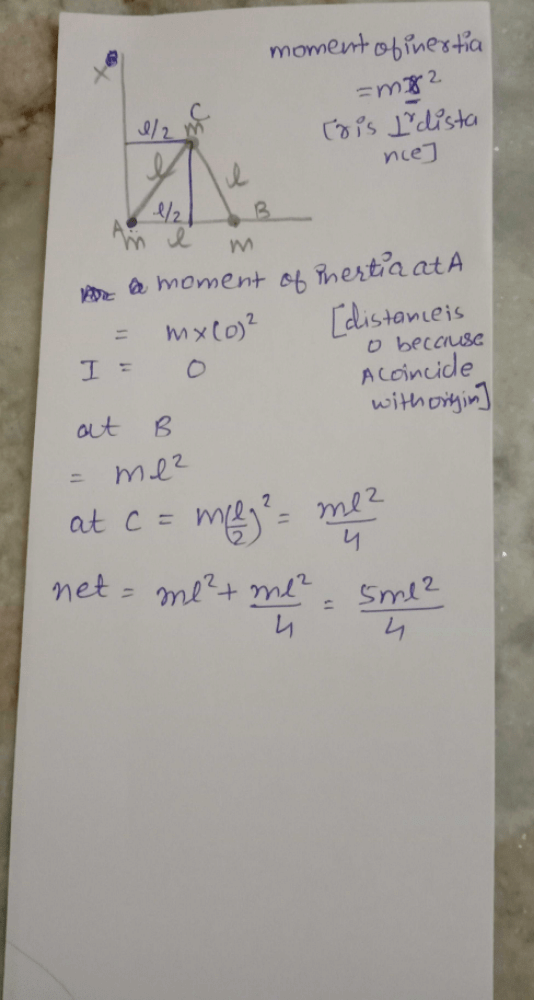 moment of inertia
= mr²
[r is ⊥r dista
nce]
X
C
m
l/2
l
l
l/2
B
A
m
l
m
a moment of inertia at A
= m×(0)²
[distance is
0 because
A coincide
with origin]
I = 0
at B
= ml²
at C = m(l/2)² = ml²/4
net = ml² + ml²/4 = 5ml²/4